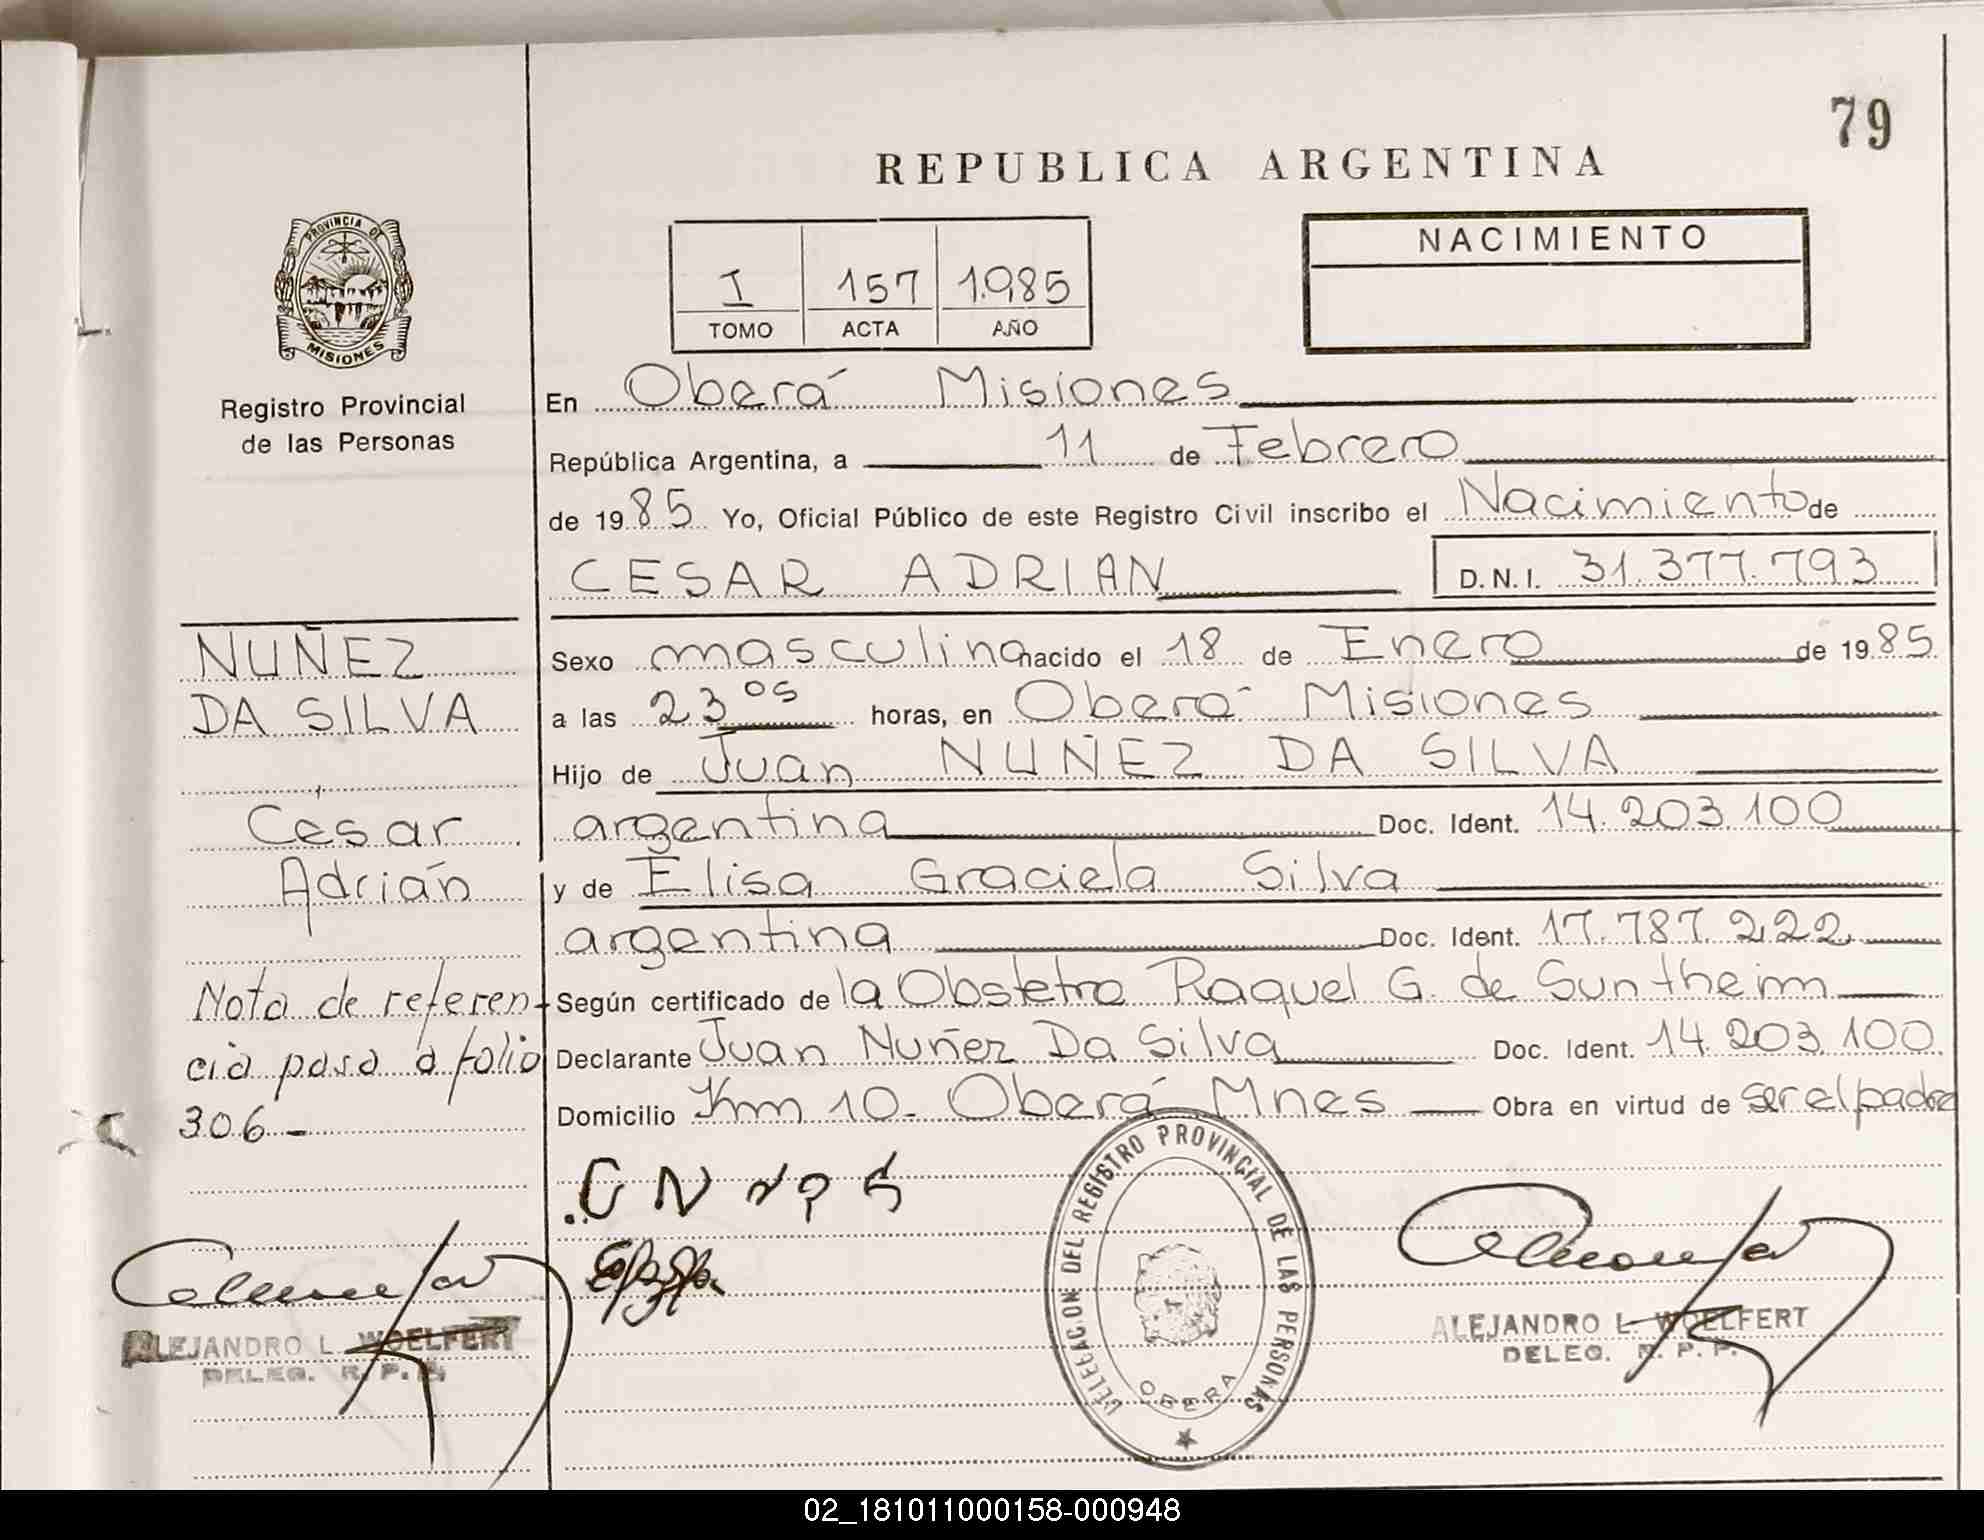 79
REPUBLICA ARGENTINA
PROVINCIA DE
MISIONES
Registro Provincial
de las Personas
I 157 1.985
TOMO ACTA AÑO
NACIMIENTO
En Oberá Misiones
República Argentina, a 11 de Febrero
de 1985 Yo, Oficial Público de este Registro Civil inscribo el Nacimiento de
CESAR ADRIAN D.N.I. 31.377.793
Sexo masculino nacido el 18 de Enero de 1985
a las 23 05 horas, en Oberá Misiones
Hijo de Juan NUÑEZ DA SILVA
argentina Doc. Ident. 14.203.100
y de Elisa Graciela Silva
argentina Doc. Ident. 17.787.222
Según certificado de la Obstetra Raquel G. de Suntheim
Declarante Juan Nuñez Da Silva Doc. Ident. 14.203.100
Domicilio Km 10. Oberá Mnes Obra en virtud de ser el padre
NUÑEZ
DA SILVA
César
Adrián
Nota de referen-
cia pasa a folio
306-
DELEGACION DEL REGISTRO PROVINCIAL DE LAS PERSONAS
OBERA
ALEJANDRO L. WOELFERT
DELEG. R. P. P.
ALEJANDRO L. WOELFERT
DELEG. R. P. P.
02_181011000158-000948